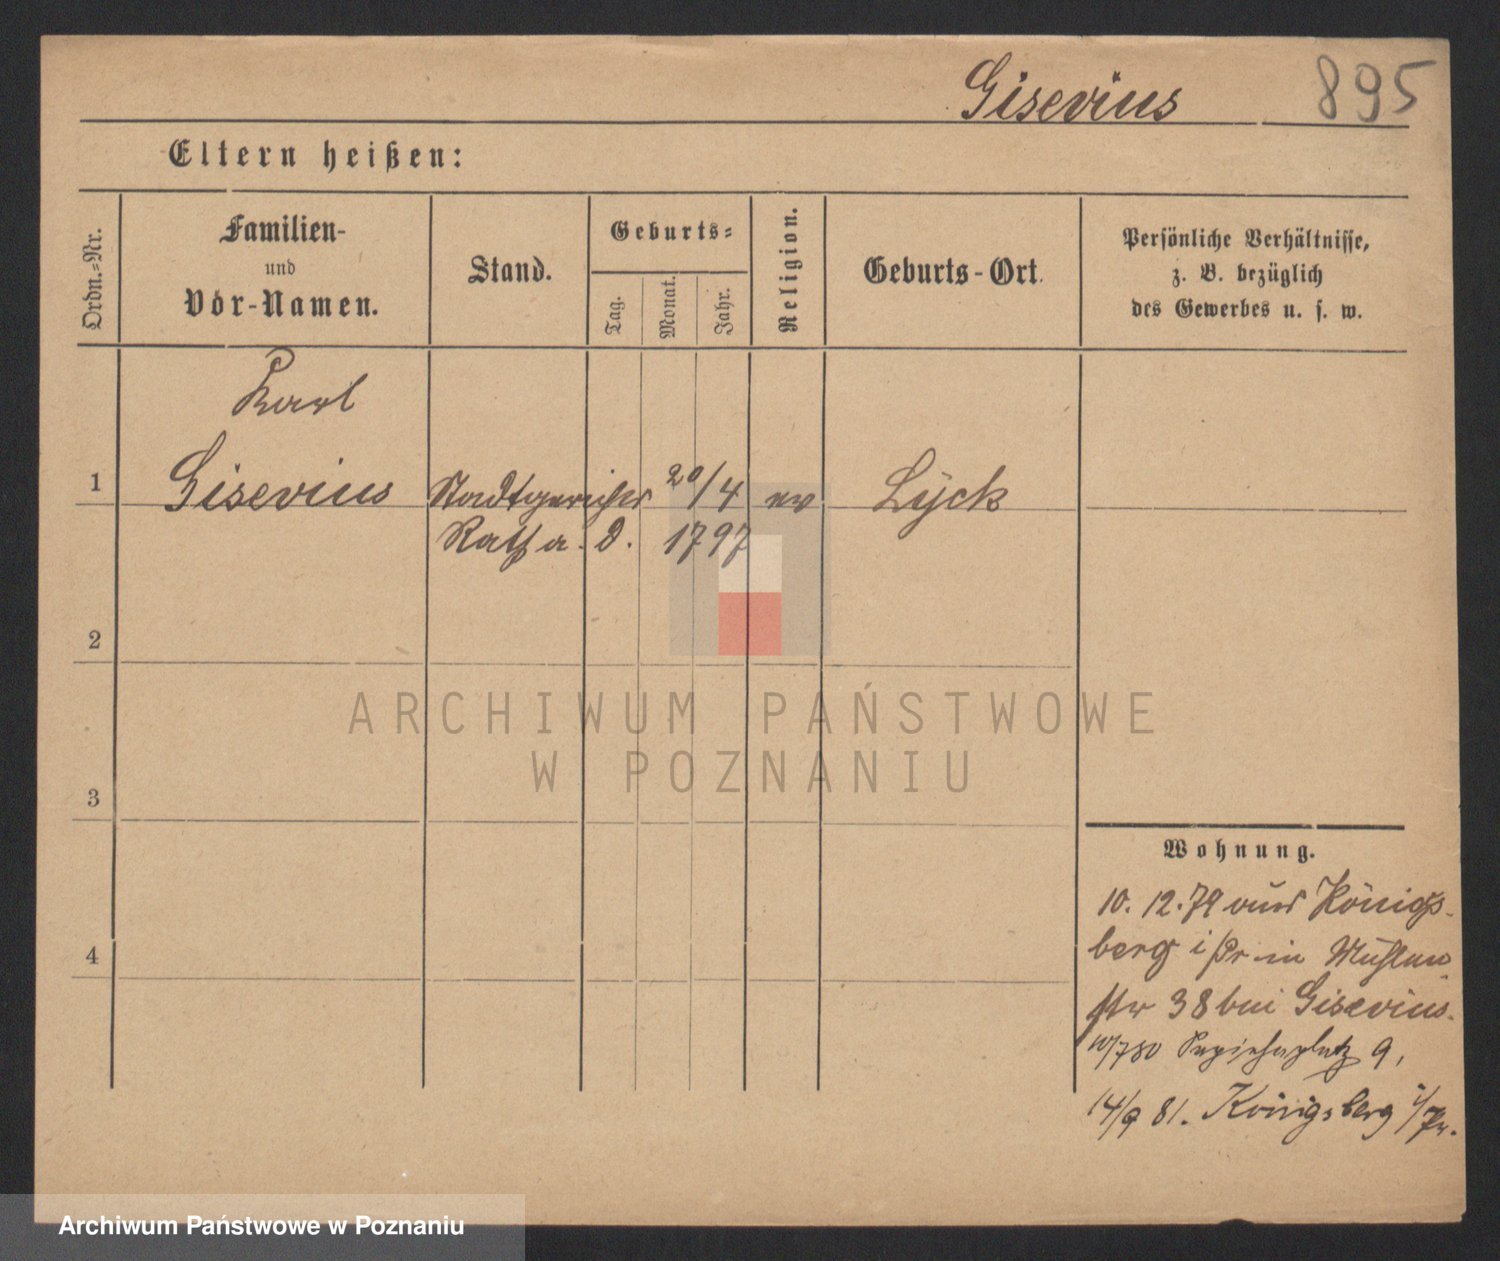 Gisevius 895
Eltern heißen:
Ordn.-Nr.
Familien-
und
Vor-Namen.
Stand.
Geburts-
Tag.
Monat.
Jahr.
Religion.
Geburts-Ort.
Persönliche Verhältnisse,
z. B. bezüglich
des Gewerbes u. s. w.
Karl
1 Gisevius Stadtgerichts 20/4 ev Lyck
Rath a. D. 1797
2
3
4
Wohnung.
10. 12. 79 aus Königs-
berg i/Pr in Mühlen-
str 38 bei Gisevius.
10/7 80 Sapiehaplatz 9,
14/9 81. Königsberg i/Pr.
ARCHIWUM PAŃSTWOWE
W POZNANIU
Archiwum Państwowe w Poznaniu